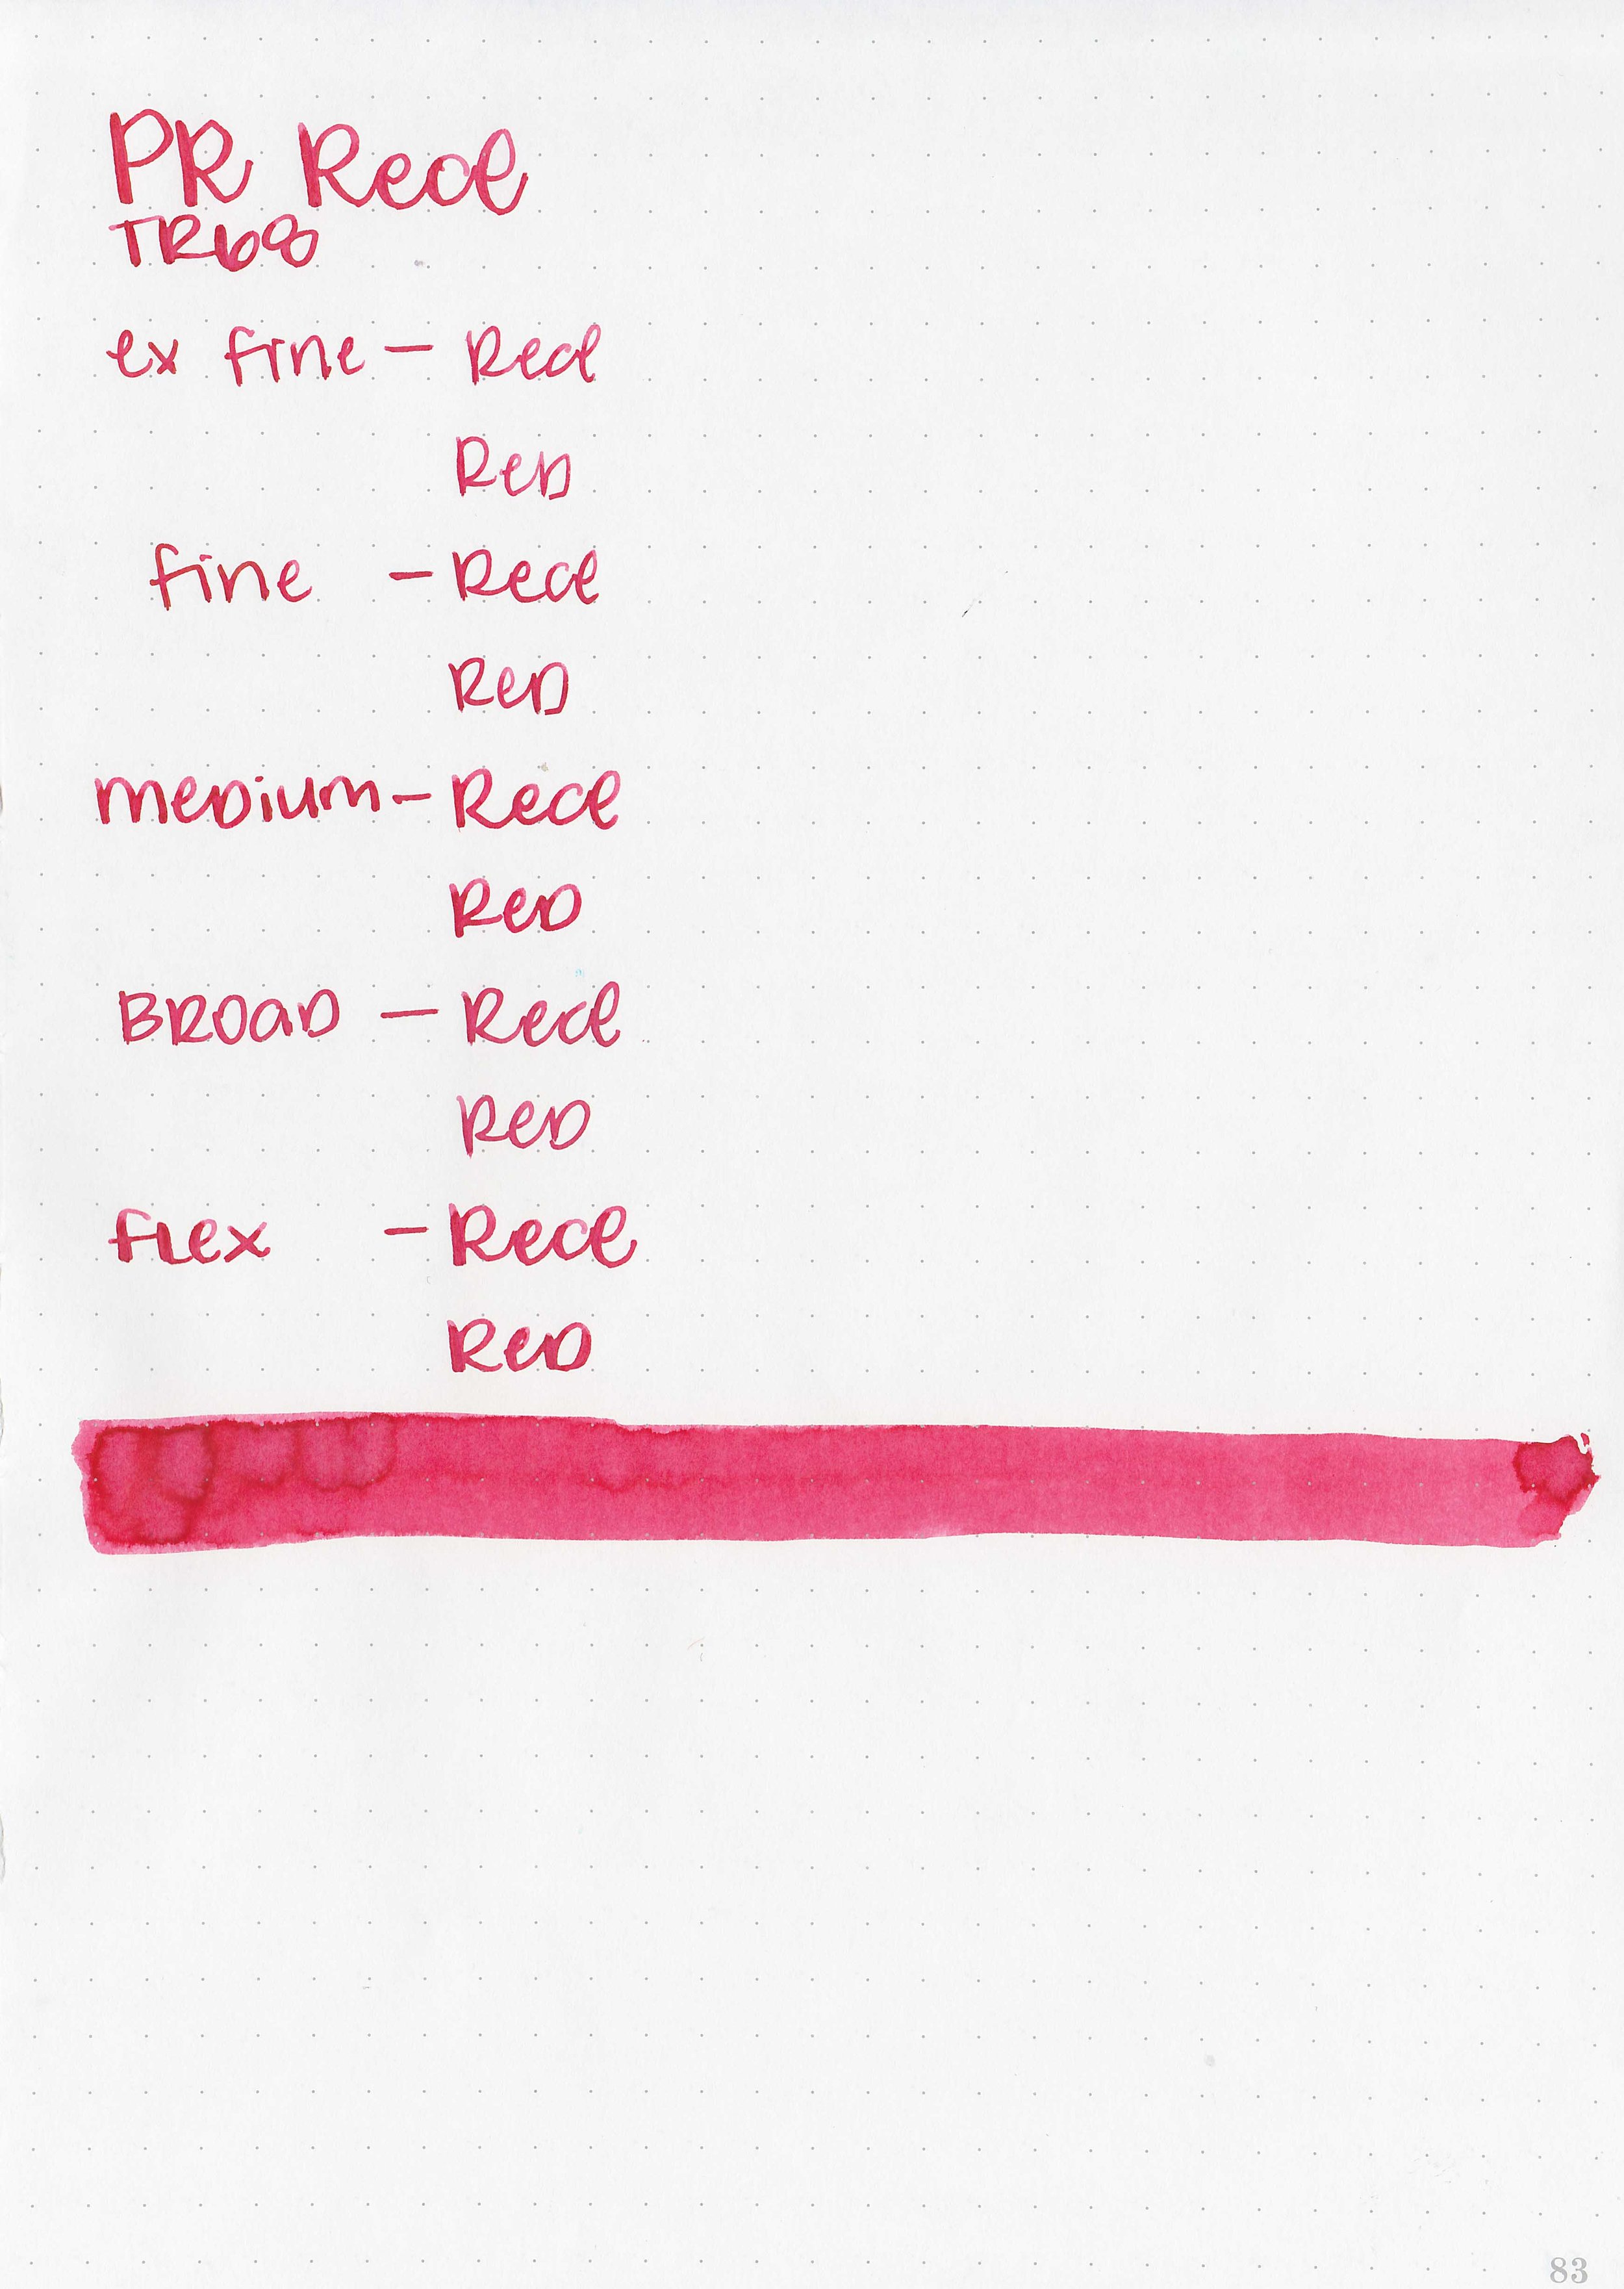 PR Red
TR68
ex fine - Red
Red
fine - Red
Red
medium - Red
Red
Broad - Red
Red
flex - Red
Red
83